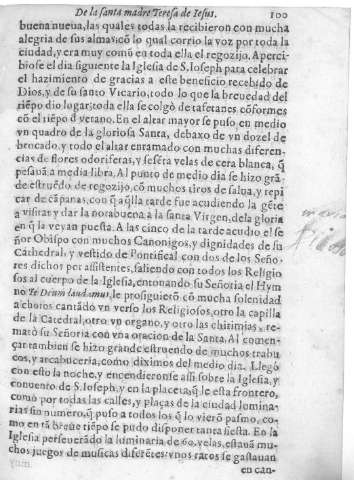 De la santa madre Teresa de Iesus. 100
buena nueua, las quales todas la recibieron con mucha
alegria de sus almas: cõ lo qual corrio la voz por toda la
ciudad, y era muy comũ en toda ella el regozijo. Aperci-
biose el dia siguiente la Iglesia de S. Ioseph para celebrar
el hazimiento de gracias a este beneficio recebido de
Dios, y de su santo Vicario, todo lo que la breuedad del
tiẽpo dio lugar: toda ella se colgò de tafetanes cõformes
cõ el tiẽpo d̃ verano. En el altar mayor se puso, en medio
vn quadro de la gloriosa Santa, debaxo de vn dozel de
brocado, y todo el altar enramado con muchas diferen-
cias de flores odoriferas, y sesẽta velas de cera blanca, q̃
pesauã a media libra. Al punto de medio dia se hizo grã-
de estruẽdo de regozijo, cõ muchos tiros de salua, y repi
car de cãpanas, con q̃ a q̃lla tarde fue acudiendo la gẽte
a visitar y dar la norabuena a la santa Virgen, de la gloria
en q̃ la veyan puesta. A las cinco de la tarde acudio el se-
ñor Obispo con muchos Canonigos, y dignidades de su
Cathedral, y vestido de Pontifical con dos de los Seño-
res dichos por assistentes, saliendo con todos los Religio
sos al cuerpo de la Iglesia, entonando su Señoria el Hym
no Te Deum laudamus, le prosiguierõ cõ mucha solenidad
a choros cantãdo vn verso los Religiosos, otro la capilla
de la Catedral, otro vn organo, y otro las chirimias: re-
matò su Señoria con vna oracion de la Santa. Al comen-
çar tambien se hizo grande estruendo de muchos trabu
cos, y arcabuceria, como diximos del medio dia. Llegò
con esto la noche, y encendieronse alli sobre la Iglesia, y
conuento de S. Ioseph, y en la placeta, q̃ le esta frontero,
como por todas las calles, y plaças de la ciudad lumina-
rias sin numero, q̃ puso a todos los q̃ lo vierõ pasmo, co-
mo en tã breue tiẽpo se pudo disponer tanta fiesta. En la
Iglesia perseuerãdo la luminaria de 60. velas, estauã mu-
chos juegos de musicas diferẽtes: vnos ratos se gastauan
en can-